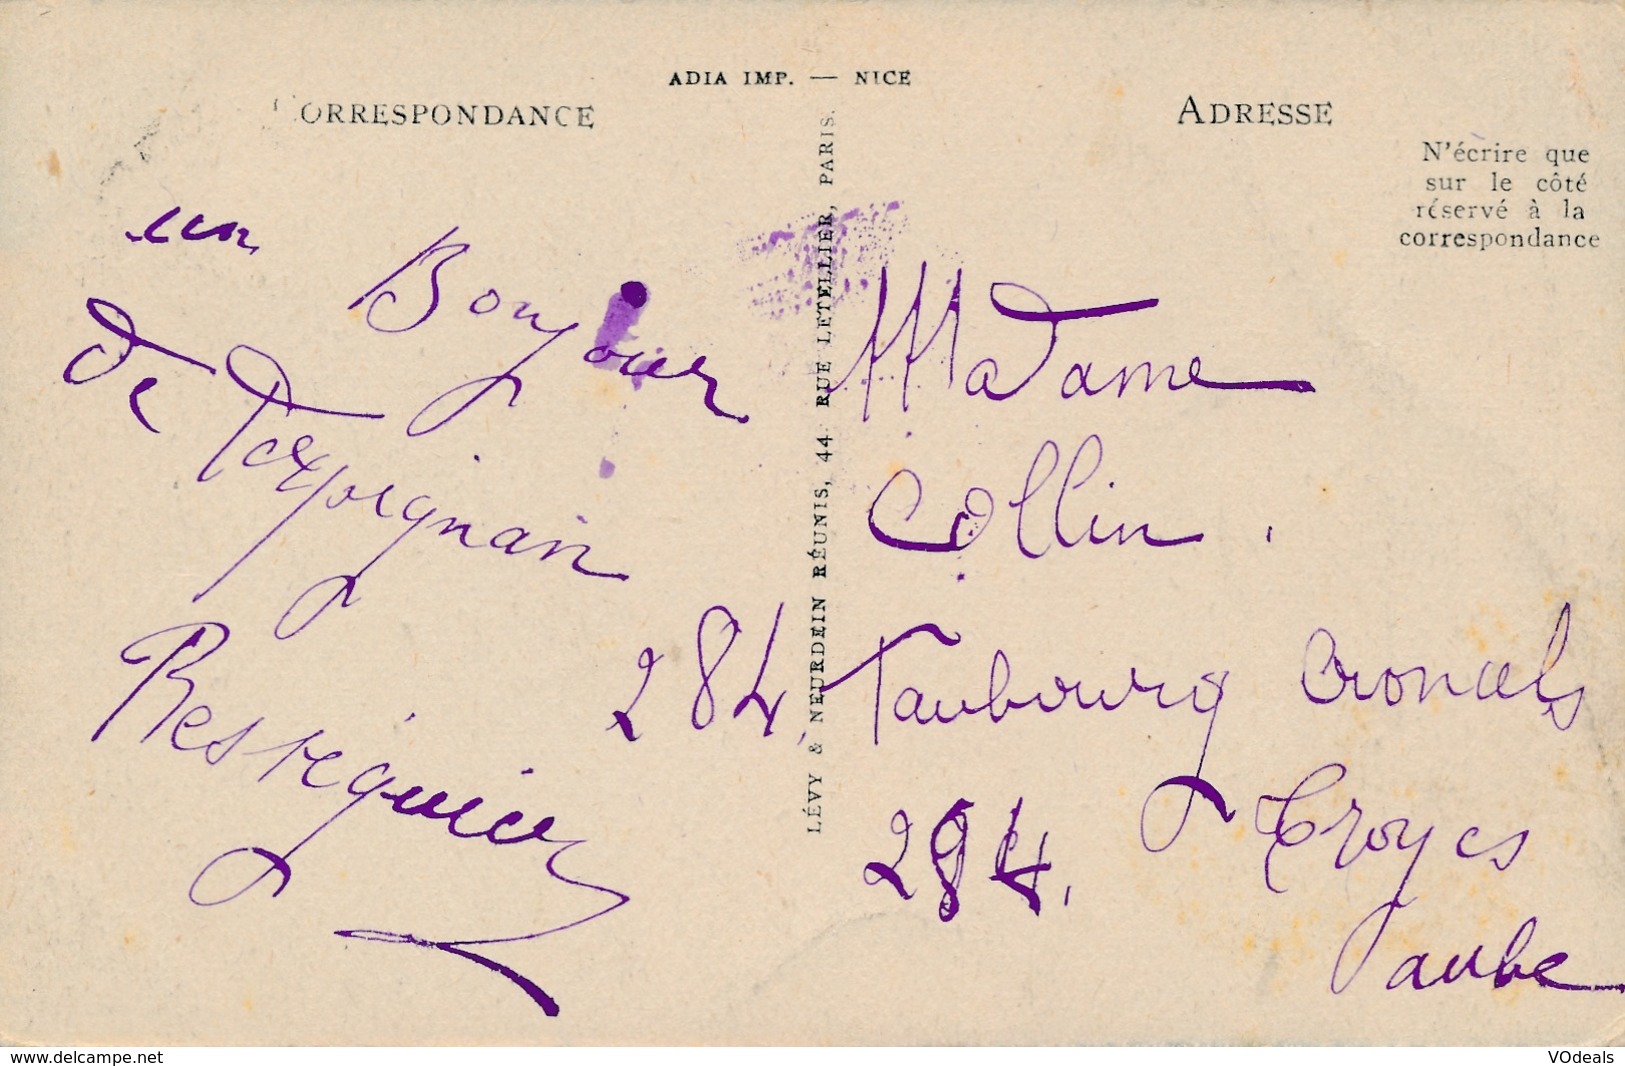 ADIA IMP. — NICE
CORRESPONDANCE
ADRESSE
N'écrire que
sur le côté
réservé à la
correspondance
un Bonjour
de Perpignan
Bessèguier
LÉVY & NEURDEIN RÉUNIS, 44 RUE LETELLIER, PARIS.
Madame
Collin.
284, Faubourg Croncels
284. Troyes
aube
www.delcampe.net
VOdeals